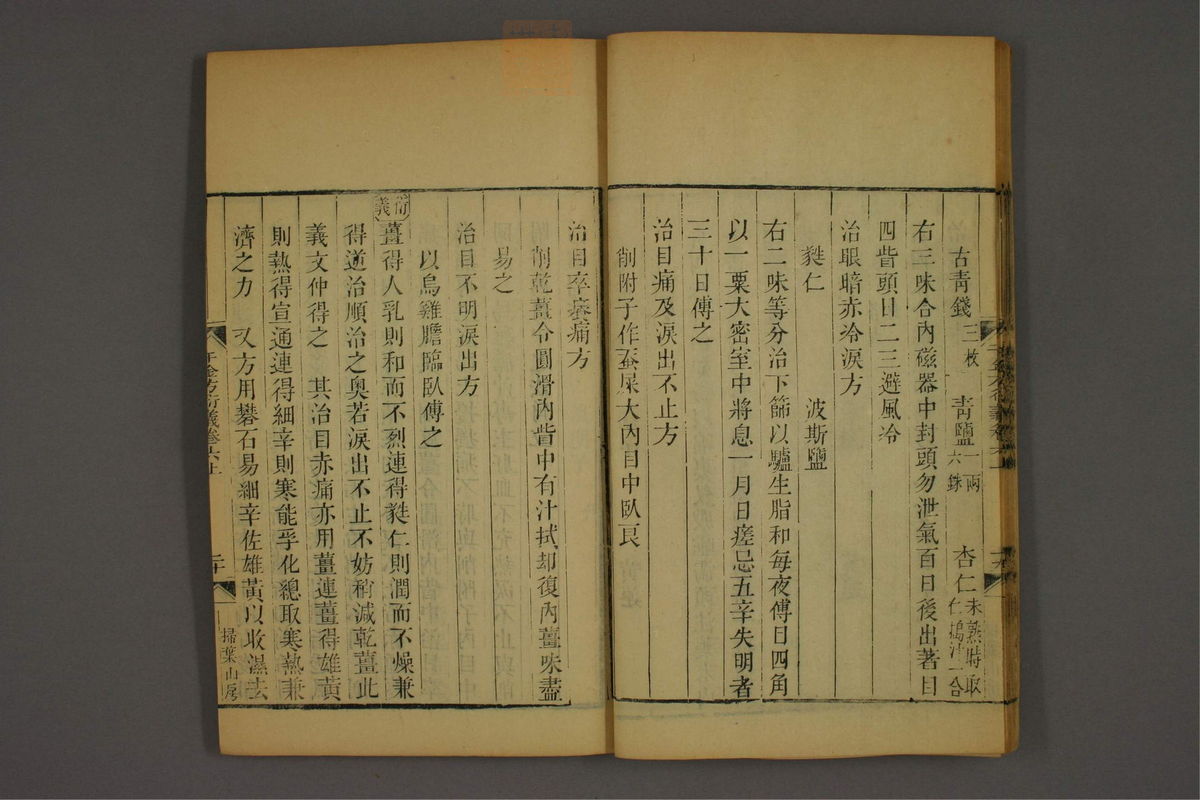 古靑錢三枚 靑鹽一兩六銖 杏仁未熟時取仁搗汁一合
右三味合內磁器中封頭勿泄氣百日後出著目
四眥頭日二三避風冷
治眼暗赤冷淚方
蕤仁 波斯鹽
右二味等分治下篩以驢生脂和每夜傅目四角
以一粟大密室中將息一月日瘥忌五辛失明者
三十日傅之
治目痛及淚出不止方
削附子作蚕屎大內目中臥良
治目卒痒痛方
削乾薑令圓滑內眥中有汁拭却復內薑味盡
易之
治目不明淚出方
以烏雞膽臨臥傅之
衍義薑得人乳則和而不烈連得蕤仁則潤而不燥兼
得逆治順治之奧若淚出不止不妨稍減乾薑此
義文仲得之 其治目赤痛亦用薑連薑得雄黃
則熱得宣通連得細辛則寒能孚化總取寒熱兼
濟之力 又方用礬石易細辛佐雄黃以收濕去
千金方衍義卷六上 二十 掃葉山房